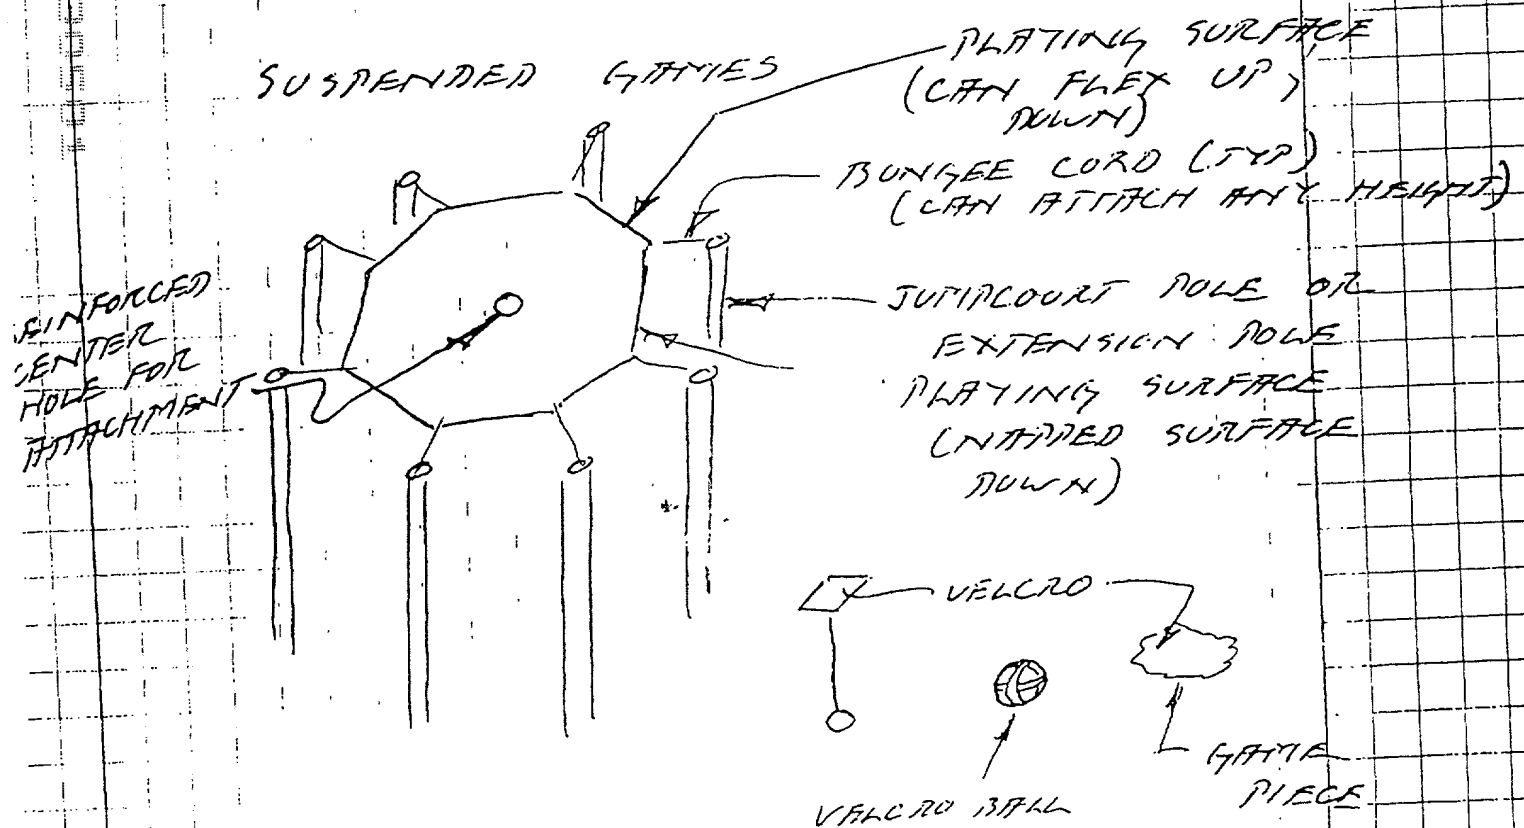 SUSPENDED GAMES
PLAYING SURFACE
(CAN FLEX UP,
DOWN)
BUNGEE CORD (TYP)
(CAN ATTACH ANY HEIGHT)
JUMPCOURT POLE OR
EXTENSION POLE
PLAYING SURFACE
(NAPPED SURFACE
DOWN)
REINFORCED
CENTER
HOLE FOR
ATTACHMENT
VELCRO
GAME
PIECE
VELCRO BALL